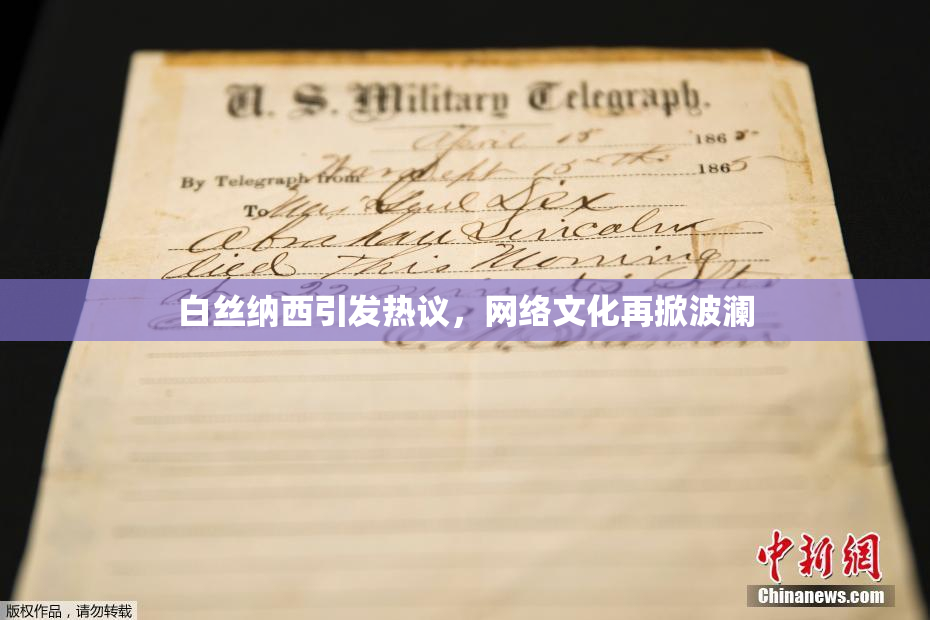 U. S. Military Telegraph.
April 15 1865
By Telegraph from War Dept 15th 1865
To Maj Genl Dix
Abraham Lincoln
died This Morning
at 22 minutes after
白丝纳西引发热议，网络文化再掀波澜
E. M. Stanton
中新網
Chinanews.com
版权作品，请勿转载